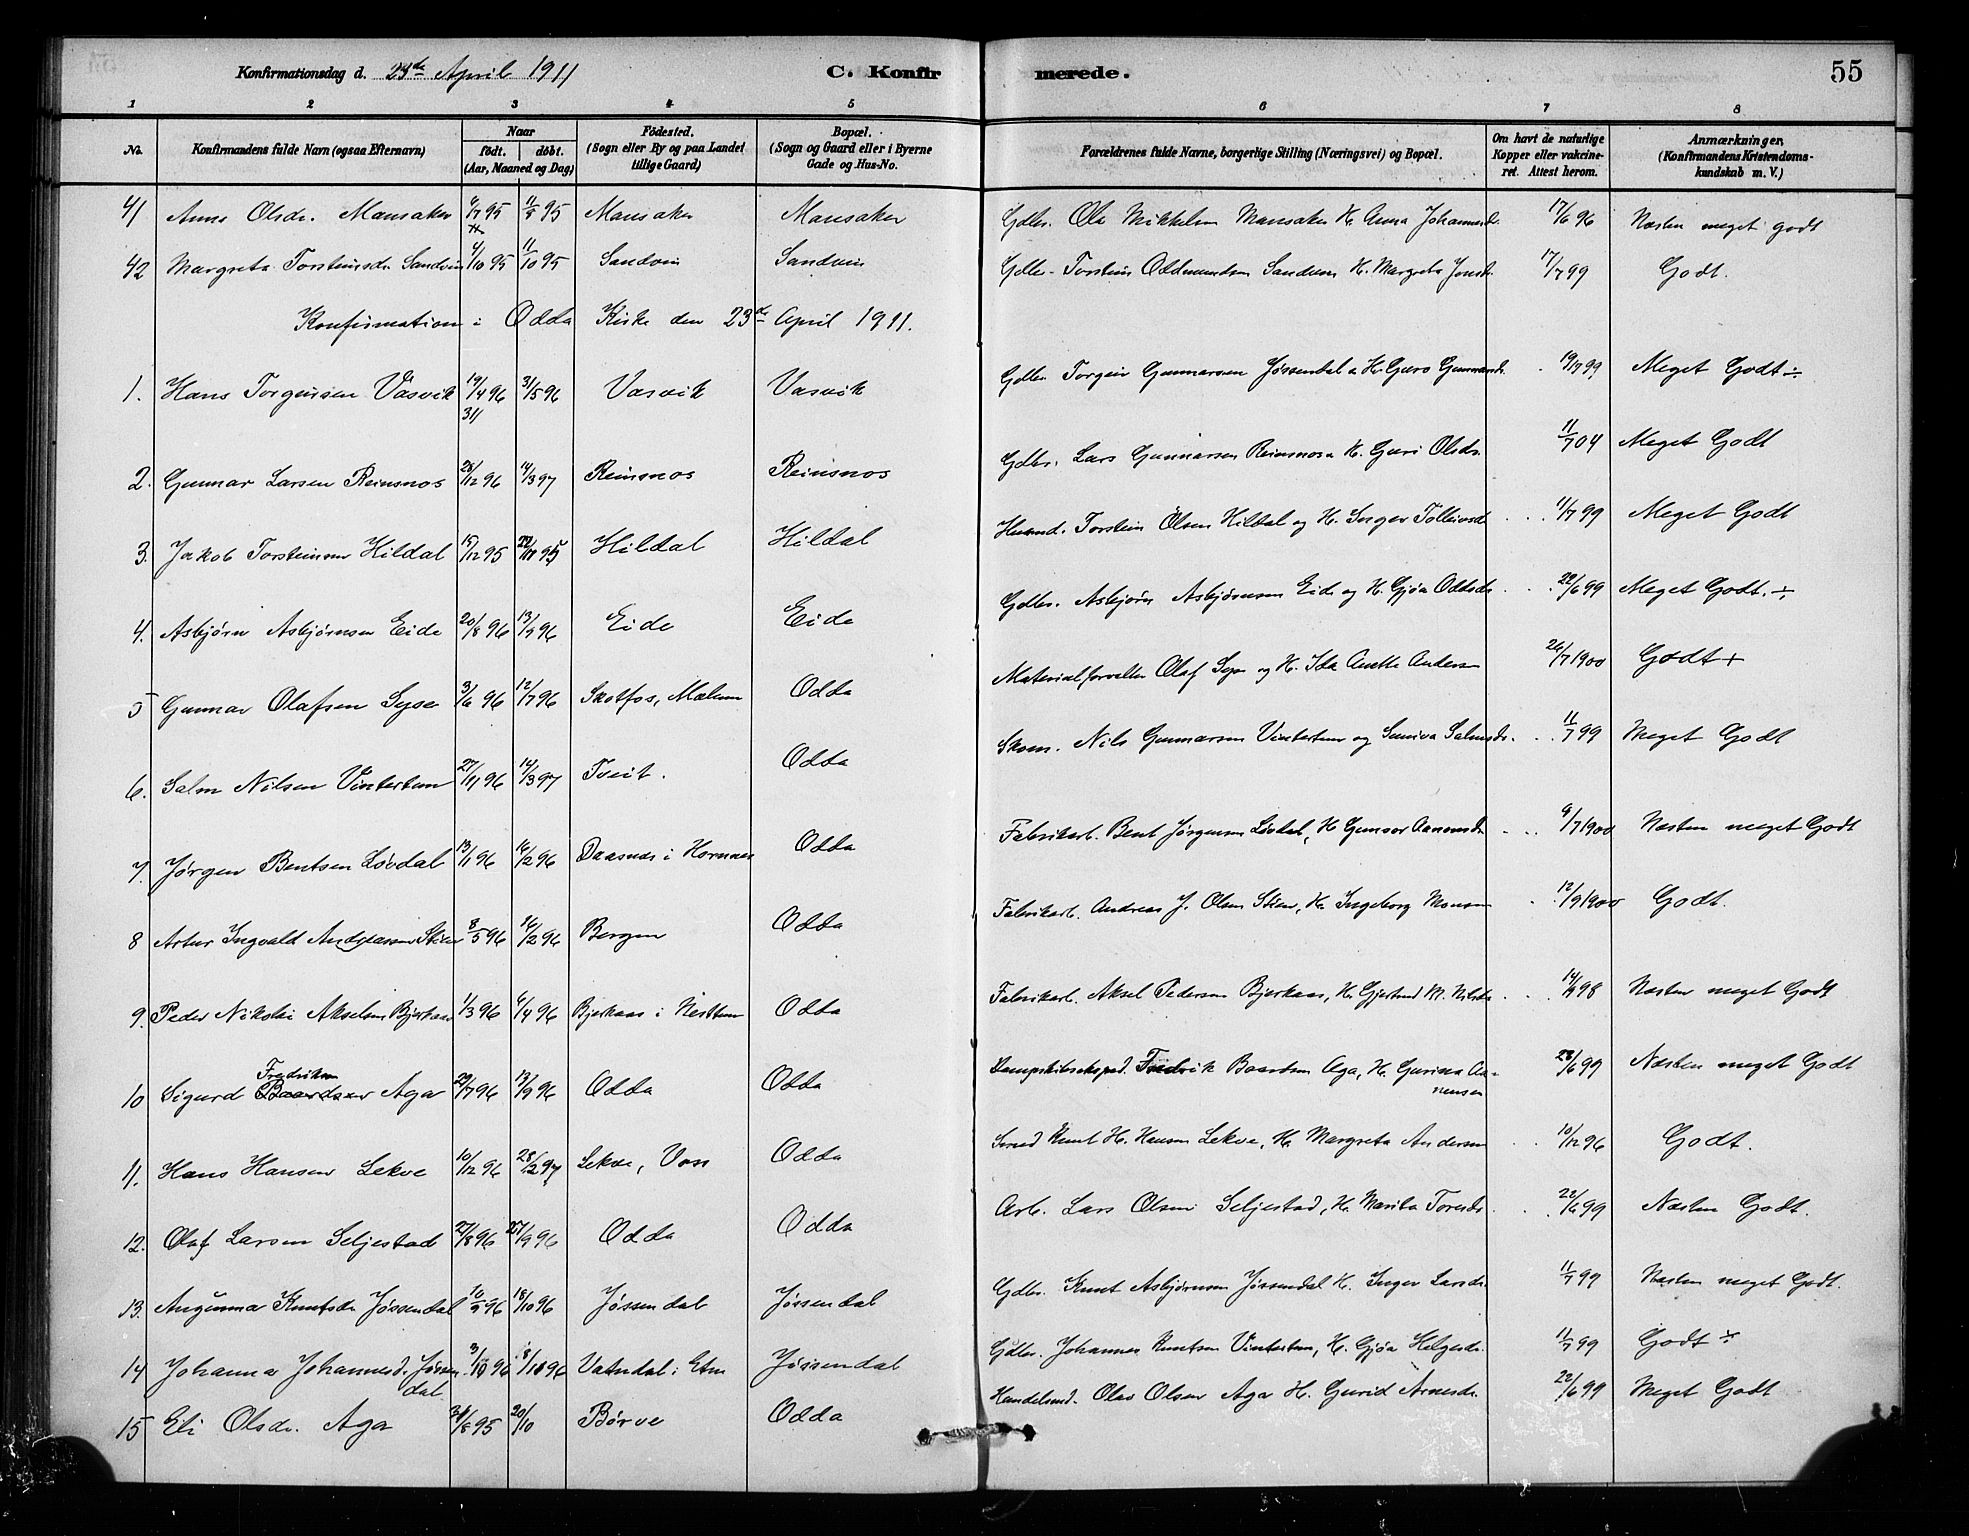 Konfirmationsdag d. 23de April 1911 C. Konfirmerede. 55
1 2 3 4 5 6 7 8
No. Konfirmandens fulde Navn (ogsaa Efternavn) Naar født. døbt. (Aar, Maaned og Dag) Fødested. (Sogn eller By og paa Landet tillige Gaard) Bopæl. (Sogn og Gaard eller i Byerne Gade og Hus-No. Forældrenes fulde Navne, borgerlige Stilling (Næringsvei) og Bopæl. Om havt de naturlige Kopper eller vakcineret. Attest herom. Anmærkninger, (Konfirmandens Kristendomskundskab m. V.)
41 Anna Olsdr. Mansaker 95 95 Mansaker Mansaker Gdbr. Ole Mikkelsen Mansaker H. Anna Johannesdr. 17/6 96 Næsten meget godt
42 Margreta Torsteinsdr Sandvin 4/10 95 11/10 95 Sandvin Sandvin Gdbr. Torstein Oddmundsen Sandven H. Margreta Jonsdr. 17/7 99 Godt.
Konfirmation i Odda Kirke den 23de April 1911.
1. Hans Torgeirsen Vasvik 19/4 96 31/5 96 Vasvik Vasvik Gdbr Torgeir Gunnarsen Jøssendal H. Guro Gunnarsdr. 19/7 99 Meget Godt ÷
2. Gunnar Larsen Reinsnos 28/12 96 14/3 97 Reinsnos Reinsnos Gdbr. Lars Gunnarsen Reinsnos H. Guri Olsdr. 11/7 04 Meget Godt
3. Jakob Torsteinsen Hildal 15/12 95 95 Hildal Hildal Husmd. Torstein Olsen Hildal og H. Inger Tolleivsdr 11/7 99 Meget Godt
4. Asbjørn Asbjørnsen Eide 20/8 96 13/9 96 Eide Eide Gdbr. Asbjørn Asbjørnsen Eide og H. Gjøa Oddsdr 22/6 99 Meget Godt. ÷
5 Gunnar Olafsen Syse 3/6 96 12/7 96 Skotfos, Melum Odda Materialforvalter Olaf Syse og H. Ida Anette Andersen 24/7 1900 Godt +
6. Salm Nilsen Vintertun 27/11 96 14/3 97 Tveit. Odda Skom. Nils Gunnarsen Vintertun og Suniva Salmsdr. 11/7 99 Meget Godt
7. Jørgen Bentsen Løvdal 13/1 96 16/2 96 Daasnes i Hornnes Odda Fabrikarb. Bent Jørgensen Løvdal, H. Gunvor Aanonsdr 9/7 1900 Næsten meget Godt
8 Artur Ingvald Andreassen Stien 8/5 96 16/2 96 Bergen Odda Fabrikarb. Andreas J. Olsen Stien, H. Ingeborg Monsen 12/9 1900 Godt.
9. Peder Nikolai Akselsen Bjerkaas 1/3 96 6/4 96 Bjerkaas i Nesttun Odda Fabrikarb. Aksel Pedersen Bjerkaas, H. Gjertrud M. Nilsdr 98 Næsten meget Godt
Fredriksen
10 Sigurd Baardsen Aga 29/7 96 13/9 96 Odda Odda Dampskibsekspd. Fredrik Baardsen Aga, H. Gurina Aanensen 23/6 99 Næsten meget Godt
11. Hans Hansen Lekve 10/12 96 28/2 97 Lekve, Voss Odda Smed Knut H. Hansen Lekve, H. Margreta Andersen 10/12 96 Godt.
12. Olaf Larsen Seljestad 27/8 96 27/9 96 Odda Odda Arb. Lars Olsen Seljestad, H. Marita Toresdr 22/6 99 Næsten Godt.
13. Angunna Knutsdr Jøssendal 10/9 96 18/10 96 Jøssendal Jøssendal Gdbr. Knut Asbjørnsen Jøssendal H. Inger Larsdr. 11/7 99 Næsten meget Godt.
14 Johanna Johannesd. Jøssendal 3/10 96 8/11 96 Vatndal i Etne Jøssendal Gdbr. Johannes Knutsen Vintertun, H. Gjøa Helgesdr. 11/7 99 Godt ÷
15 Eli Olsdr. Aga 95 20/10 Børve Odda Handelsmd. Olav Olsen Aga H. Gurid Arnesdr. 22/6 99 Meget Godt